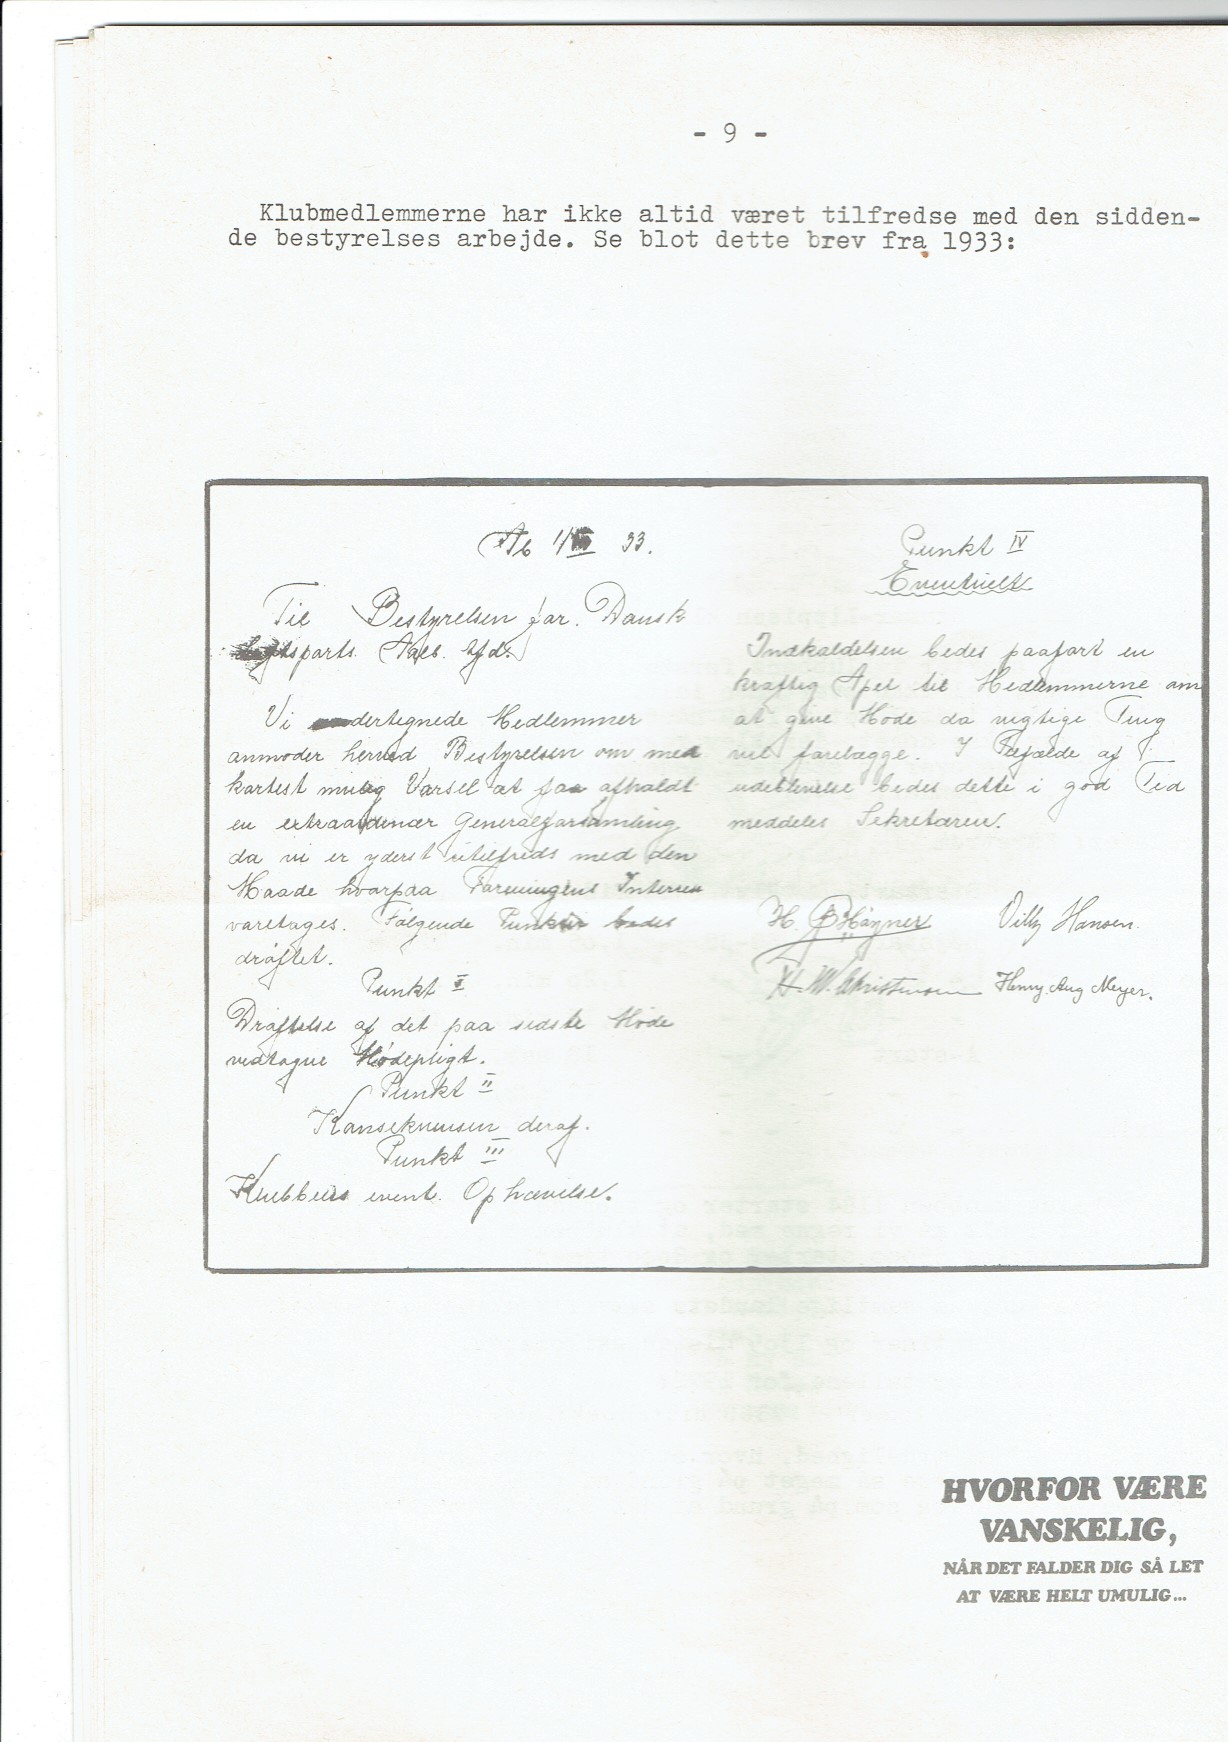 - 9 -
Klubmedlemmerne har ikke altid været tilfredse med den sidden-
de bestyrelses arbejde. Se blot dette brev fra 1933:
33.
Til Bestyrelsen for Dansk
Aalb. Afd.
Vi undertegnede Medlemmer
anmoder herved Bestyrelsen om med
kortest mulig Varsel at faa afholdt
en extraordinær Generalforsamling
da vi er yderst utilfreds med den
Maade hvorpaa Foreningens Interesser
varetages. Følgende Punkter bedes
drøftet.
Punkt I
Drøftelse af det paa sidste Møde
vedtagne Mødepligt.
Punkt II
Konsekvensen deraf.
Punkt III
Klubbens event. Ophævelse.
Punkt IV
Eventuelt
Indkaldelsen bedes paaført en
kraftig Apel til Medlemmerne om
at give Møde da vigtige Ting
vil forelægge. I Tilfælde af
udeblivelse bedes dette i god Tid
meddeles Sekretæren.
H. Villy Hansen.
H. W. Christensen Henry. Aug Meyer.
HVORFOR VÆRE
VANSKELIG,
NÅR DET FALDER DIG SÅ LET
AT VÆRE HELT UMULIG...